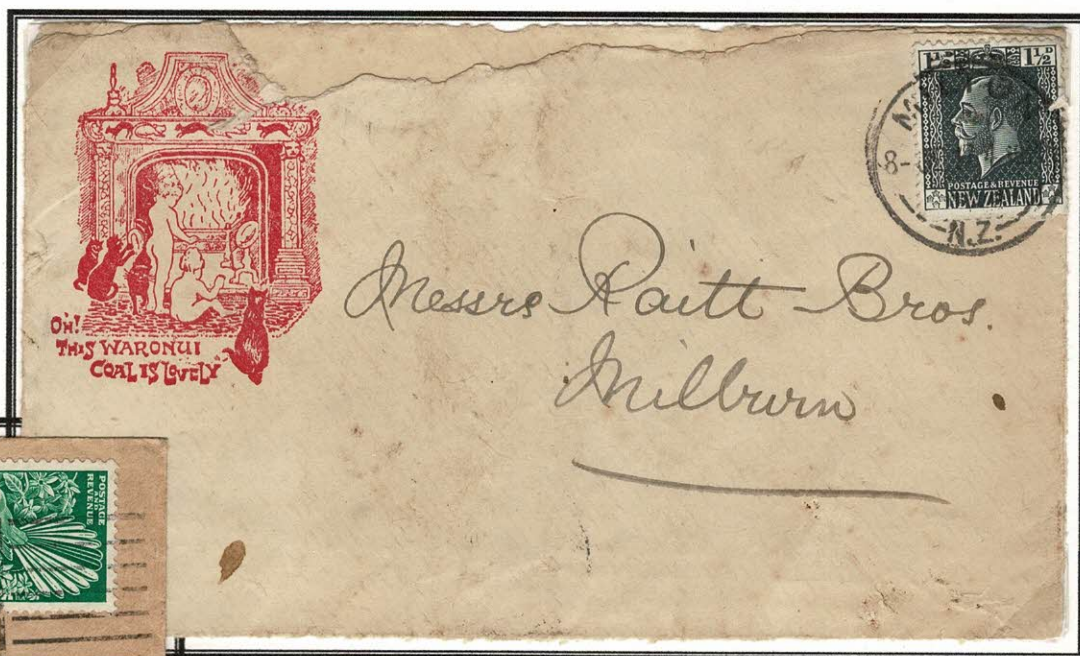 OH!
THIS WARONUI
COAL IS LOVELY
1½D
POSTAGE & REVENUE
NEW ZEALAND
8-
N.Z.
Messrs Raitt Bros.
Milburn
POSTAGE
AND
REVENUE